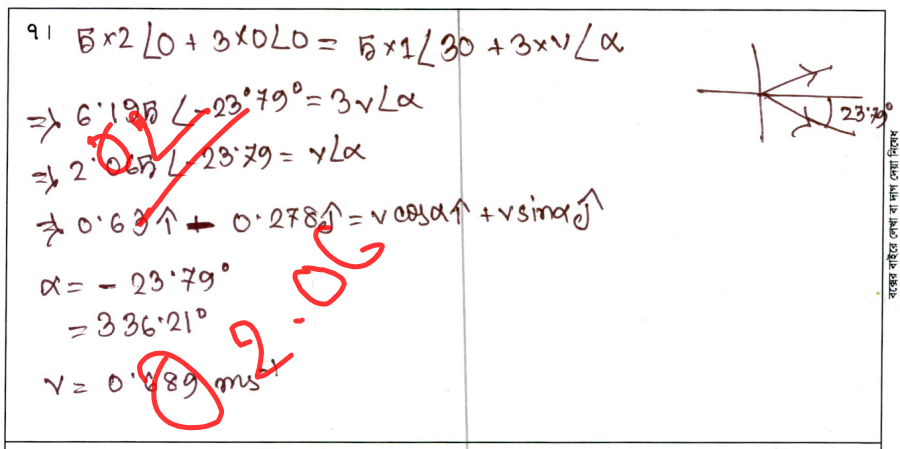 ৭। 5×2∠0 + 3×0∠0 = 5×1∠30 + 3×v∠α
⇒ 6.195 ∠-23.79° = 3v∠α
⇒ 2.065 ∠-23.79 = v∠α
⇒ 0.63î - 0.278ĵ = v cosα î + v sinα ĵ
α = - 23.79°
= 336.21°
v = 0.689 ms⁻¹
2.06
23.79°
বক্সের বাইরে লেখা বা দাগ দেয়া নিষেধ